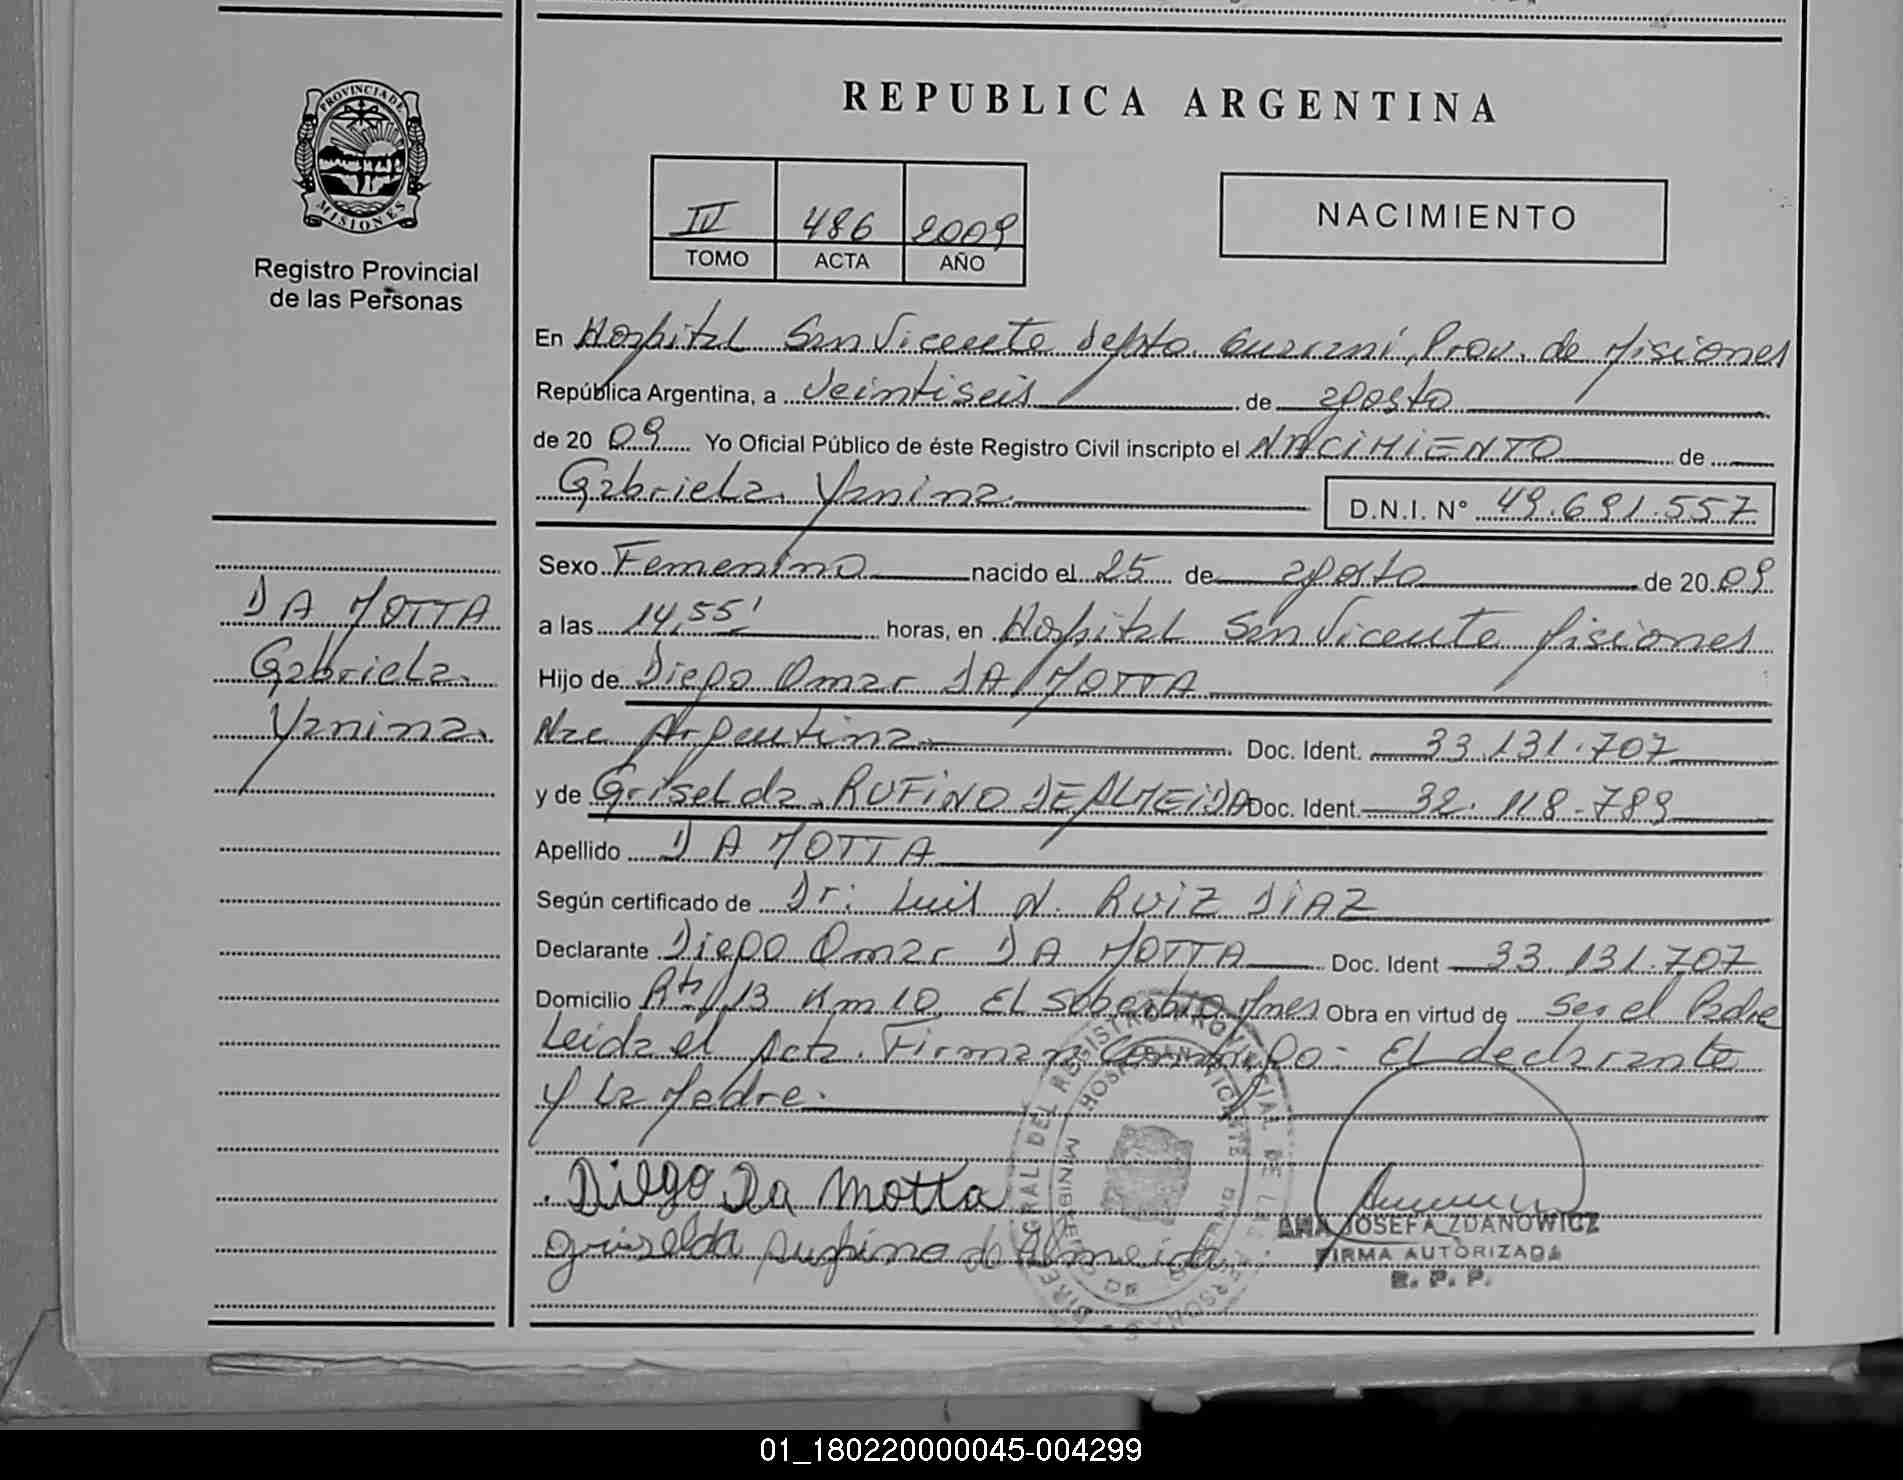 REPUBLICA ARGENTINA
PROVINCIA DE
MISIONES
Registro Provincial
de las Personas
IV 486 2009
TOMO ACTA AÑO
NACIMIENTO
En Hospital San Vicente Depto. Guarani, Prov. de Misiones
República Argentina, a Veintiseis de agosto
de 2009 Yo Oficial Público de éste Registro Civil inscripto el NACIMIENTO de
Gabriela Yanina D.N.I. N° 49.691.557
Sexo Femenino nacido el 25 de agosto de 2009
a las 14,55' horas, en Hospital San Vicente Misiones
Hijo de Diego Omar DA MOTTA
Nac Argentina Doc. Ident. 33.131.707
y de Griselda RUFINO DE ALMEIDA Doc. Ident. 32.118.789
Apellido DA MOTTA
Según certificado de Dr: Luis N. RUIZ DIAZ
Declarante Diego Omar DA MOTTA Doc. Ident 33.131.707
Domicilio Rta 13 Km 10 El Soberbio Mnes Obra en virtud de ser el Padre
Leida el Acta. Firman Conmigo: El declarante
y la Madre.
DA MOTTA
Gabriela
Yanina
Diego Da Motta
ANA JOSEFA ZDANOWICZ
FIRMA AUTORIZADA
R. P. P.
01_180220000045-004299